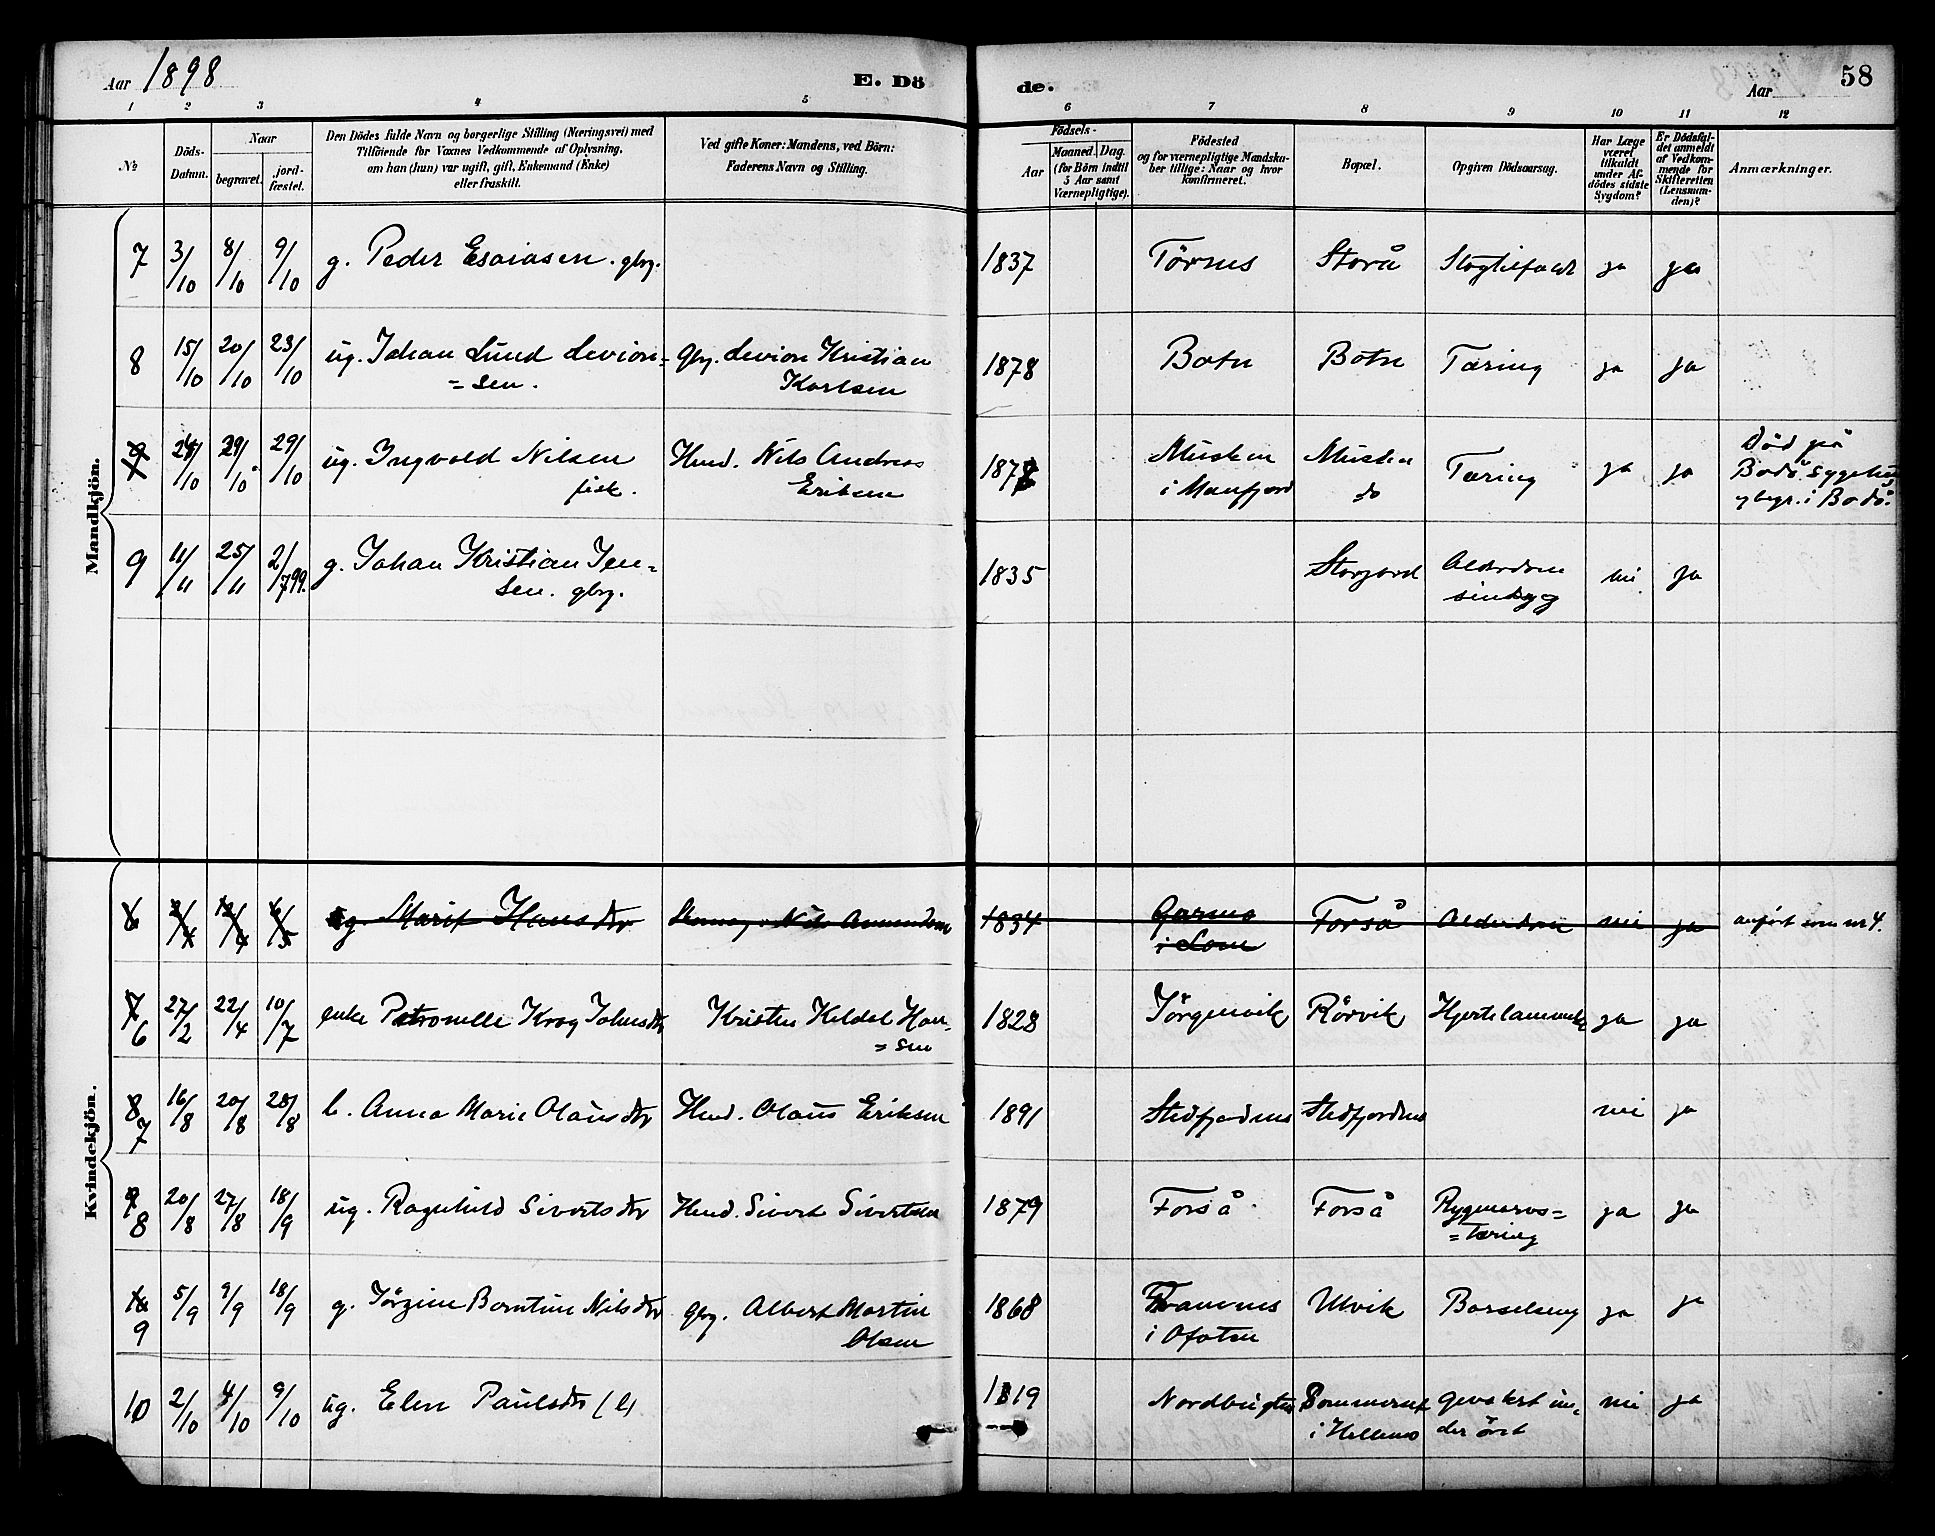 Aar 1898 E. Dö de. Aar 58
1 2 3 4 5 6 7 8 9 10 11 12
№
Döds-Datum.
Naar
begravet.
jord-fæstet.
Den Dödes fulde Navn og borgerlige Stilling (Næringsvei) med
Tilföiende for Voxnes Vedkommende af Oplysning,
om han (hun) var ugift, gift, Enkemand (Enke)
eller fraskilt.
Ved gifte Koner: Mandens, ved Börn:
Faderens Navn og Stilling.
Födsels-
Aar
Maaned. Dag.
(for Börn indtil
5 Aar samt
Værnepligtige).
Födested
og for værnepligtige Mandska-
ber tillige: Naar og hvor
konfirmeret.
Bopæl.
Opgiven Dödsaarsag.
Har Læge
været
tilkaldt
under Af-
dödes sidste
Sygdom?
Er Dödsfal-
det anmeldt
af Vedkom-
mende for
Skifteretten
(Lensman-
den)?
Anmærkninger.
Mandkjön.
7 3/10 8/10 9/10 g. Peder Esaiasen. gbrg. 1837 Tørnes Storå Slagtilfælde ja ja
8 15/10 20/10 23/10 ug. Johan Lund Levion= Gbrg. Levion Kristian 1878 Botn Botn Tæring ja ja
=sen. Karlsen
9 24/10 29/10 29/10 ug. Ingvald Nilsen Husmd. Nils Andreas 187 Musken Musken Tæring ja ja Död på
fisk. Eriksen i Manfjord do Bodö Sygehus
og begr. i Bodö.
9 11/11 25/11 2/7 99. g. Johan Kristian Jen= 1835 Storjord Alderdom nei ja
sen. gbrg. sindsyg
Kvindekjön.
6 2/4 12/4 6/5 ug. Marit Hansdtr 1834 Garmo Forså Alderdom nei ja anført som nr 4.
i Lom
7 6 27/2 22/4 10/7 enke Petronelle Krog Johnsdtr Kristen Heldal Han= 1828 Jörgenvik Rörvik Hjertelammelse ja ja
=sen
8 7 16/8 20/8 28/8 b. Anna Marie Olausdtr Husmd. Olaus Eriksen 1891 Stedfjorden Stedfjorden nei ja
9 8 20/8 27/8 18/9 ug. Ragnhild Sivertsdtr Husmd. Sivert Sivertsen 1879 Forså Forså Rygmarvs= ja ja
=Tæring
10 9 5/9 9/9 18/9 g. Jörgine Berntine Nilsdtr Gbrg. Albert Martin 1868 Framnes Ulvik Barselseng ja ja
Olsen i Ofoten
10 2/10 4/10 9/10 ug. Elen Paulsdtr (l) 1819 Nordbugten Sommerset nei ja
i Hellemo